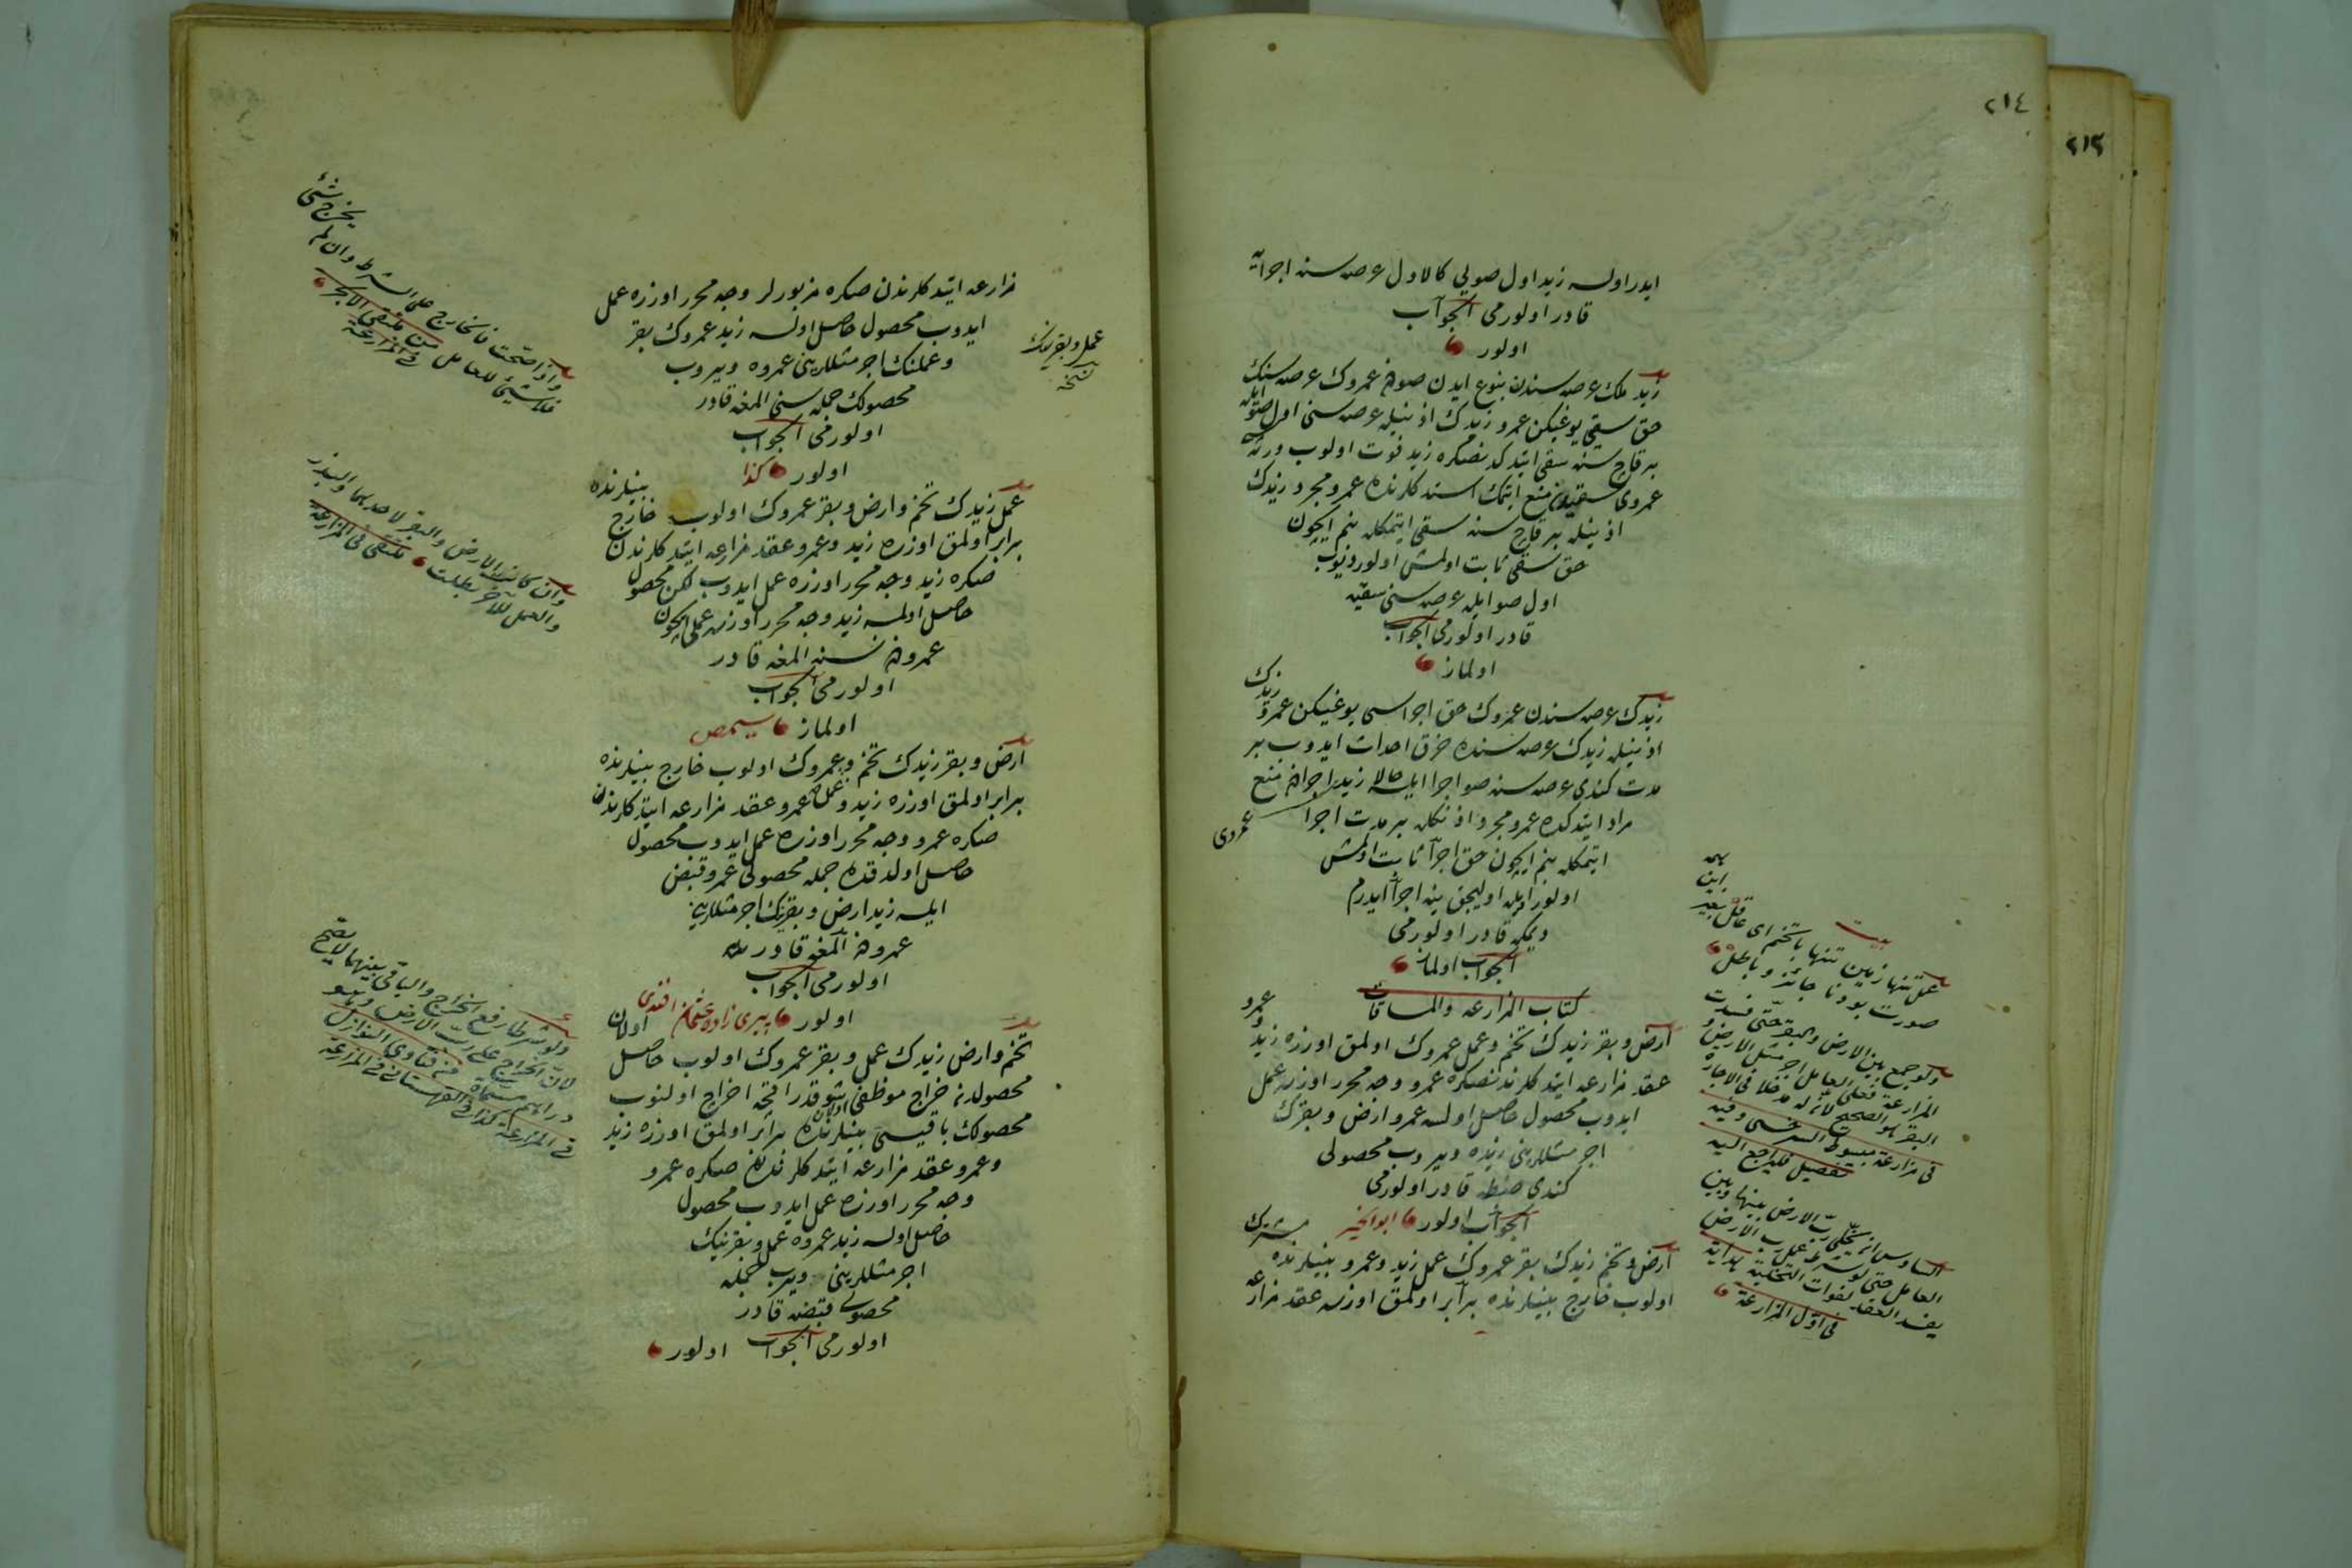 ٢١٤
٢١٣
ايدر اولسه زيد اول صويى كالاول عرصه سنه اجرايه
قادر اولورمى الجواب
اولور
زيد ملك عرصه سندن نبوع ايدن صودن عمروك عرصه سنك
حق سقيى يوغيكن عمرو زيدك اذنيله عرصه سنى اول صو ايله
بر قاچ سنه سقى ايتدكدنصكره زيد فوت اولوب ورثه
عمروى سقيدن منع ايتمك استدكلرنده عمرو مجرد زيدك
اذنيله بر قاچ سنه سقى ايتمكله بنم ايچون
حق سقى ثابت اولمش اولور ديوب
اول صو ايله عرصه سنى سقيه
قادر اولورمى الجواب
اولماز
زيدك عرصه سندن عمروك حق اجراسى يوغيكن عمرو زيدك
اذنيله زيدك عرصه سنده خرق احداث ايدوب بر
مدت كندى عرصه سنه صو اجرا ايلسه حالا زيد اجرادن منع
عمروى
مراد ايتدكده عمرو مجرد اذنكله بر مدت اجرا
ايتمكله بنم ايچون حق اجرا ثابت اولمش
اولور ايله اوليجق ينه اجرا ايدرم
ديمكه قادر اولورمى
الجواب اولماز
كتاب المزارعه والمساقات
ارض و بقر زيدك تخم و عمل عمروك اولمق اوزره زيد و عمرو
عقد مزارعه ايتدكلرندنصكره عمرو وجه محرر اوزره عمل
ايدوب محصول حاصل اولسه عمرو ارض و بقرك
اجر مثللرينى زيده ويروب محصولى
كندى ضبطه قادر اولورمى
الجواب اولور ابو الخير
ارض و تخم زيدك بقر عمروك عمل زيد و عمرو بينلرنده مشترك
اولوب خارج بينلرنده برابر اولمق اوزره عقد مزارعه
بيت
عمل تنها زمين تنها با تخم اى عاقل
صورت بودنا جائز و باطل
ولو جمع بين الارض والبقر حتى فسدت
المزارعة فعلى العامل اجر مثل الارض و
البقر هو الصحيح لان له مدخلا فى الاجارة
فى مزارعة مبسوط السرخسى وفيه
تفصيل فليراجع اليه
السادس ان يخلى رب الارض بينها وبين
العامل حتى لو شرط عمل رب الارض
يفسد العقد لفوات التخلية هداية
فى اول المزارعة
مزارعه ايتدكلرندن صكره مزبورلر وجه محرر اوزره عمل
ايدوب محصول حاصل اولسه زيد عمروك بقر
و عملنك اجر مثللرينى عمروه ويروب
محصولك جمله سنى المغه قادر
اولورمى الجواب
اولور كذا
عمل و بقرينك
نسخه
عمل زيدك تخم و ارض و بقر عمروك اولوب خارج بينلرنده
برابر اولمق اوزره زيد و عمرو عقد مزارعه ايتدكلرندن
صكره زيد وجه محرر اوزره عمل ايدوب لكن محصول
حاصل اولمسه زيد وجه محرر اوزره عملى ايچون
عمرودن نسنه المغه قادر
اولورمى الجواب
اولماز
ارض و بقر زيدك تخم و عمل عمروك اولوب خارج بينلرنده
برابر اولمق اوزره زيد و عمرو عقد مزارعه ايتدكلرندن
صكره عمرو وجه محرر اوزره عمل ايدوب محصول
حاصل اولدقده جمله محصولى عمرو قبض
ايلسه زيد ارض و بقرينك اجر مثللرينى
عمرودن المغه قادر
اولورمى الجواب
اولور پيرى زاده عثمان افندى
تخم و ارض زيدك عمل و بقر عمروك اولوب حاصل اولان
محصولدن خراج موظفى شو قدر اقچه اخراج اولنوب
محصولك باقيسى بينلرنده برابر اولمق اوزره زيد
و عمرو عقد مزارعه ايتدكلرندن صكره عمرو
وجه محرر اوزره عمل ايدوب محصول
حاصل اولسه زيد عمروه عمل و بقرينك
اجر مثللرينى ويروب جمله
محصولى قبضه قادر
اولورمى الجواب اولور
واذا صحت فالخارج على الشرط وان لم يخرج شئ
فلا شئ للعامل من ملتقى الابحر
فى المزارعة
وان كانت الارض والبقر لاحدهما والبذر
والعمل للآخر بطلت ملتقى فى المزارعة
ولو شرطا رفع الخراج والباقى بينهما لا يصح
لان الخراج على رب الارض
دراهم مسماة من فتاوى النوازل
فى المزارعة كذا فى القهستانى فى المزارعة